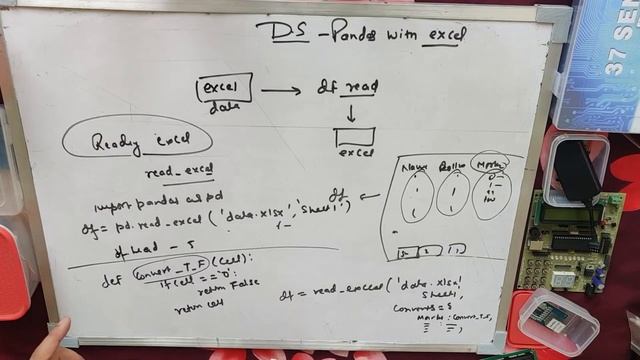 DS - Pandas with excel
excel
data
df read
excel
Reading excel
read_excel
import pandas as pd
df = pd.read_excel('data.xlsx', 'Sheet1')
df head - 5
df
Name Rollno Marks
def Convert_T_F(cell):
if cell == '0':
return False
return cell
df = read_excel('data.xlsx'
Sheet1,
Converts = {
Marks : Convert_T_F,
37 SEN